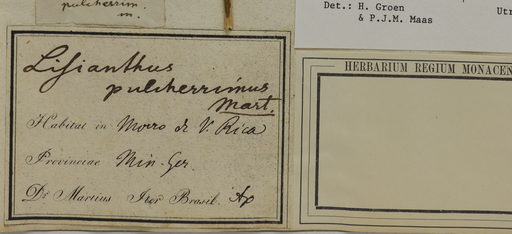 pulcherrim.
m.
Det.: H. Groen
& P.J.M. Maas
Utr
HERBARIUM REGIUM MONACEN
Lisianthus
pulcherrimus
Mart.
Habitat in Morro de V. Rica
Provinciae Min. Ger.
Dr Martius Iter Brasil. Ap